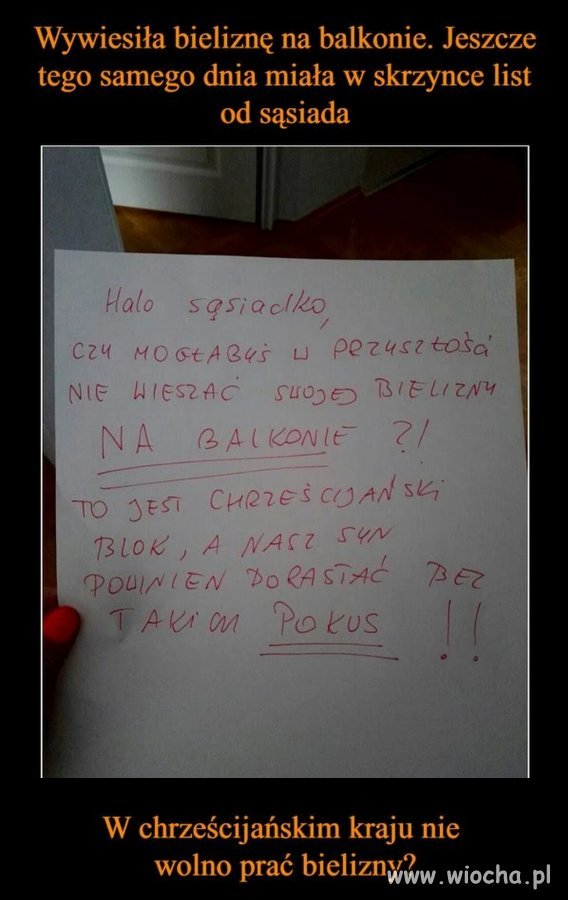 Wywiesiła bieliznę na balkonie. Jeszcze
tego samego dnia miała w skrzynce list
od sąsiada
Halo sąsiadko,
CZY MOGŁABYŚ W PRZYSZŁOŚCI
NIE WIESZAĆ SWOJEJ BIELIZNY
NA BALKONIE ?!
TO JEST CHRZEŚCIJAŃSKI
BLOK, A NASZ SYN
POWINIEN DORASTAĆ BEZ
TAKICH POKUS !!
W chrześcijańskim kraju nie
wolno prać bielizny?
www.wiocha.pl